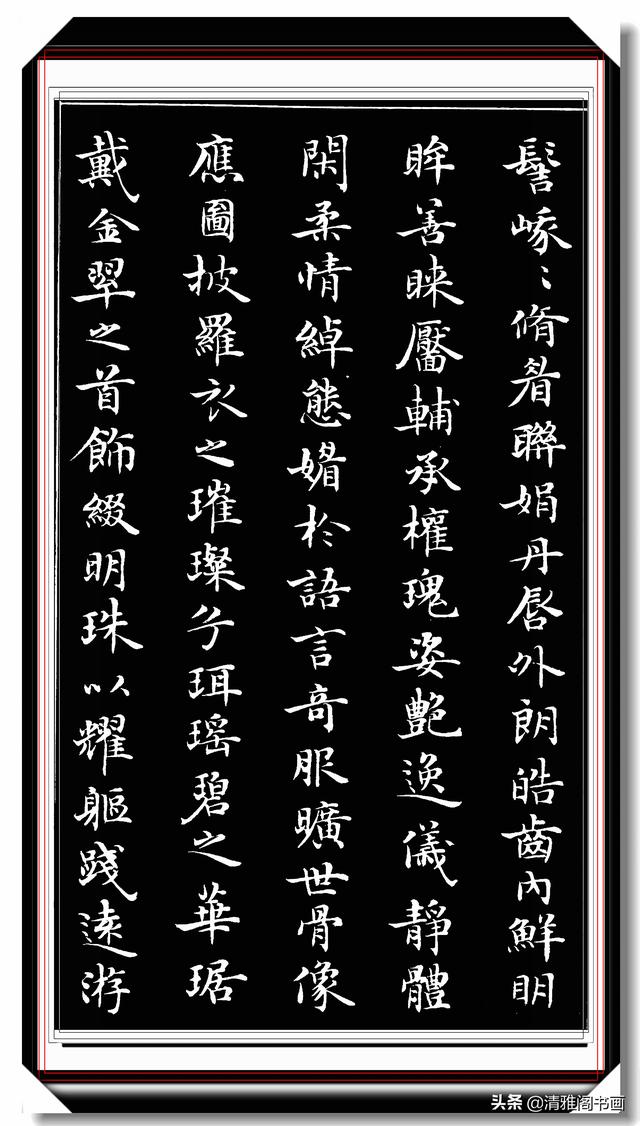 髻峨〻脩眉聯娟丹唇外朗皓齒內鮮明
眸善睞靨輔承權瑰姿艷逸儀靜體
閑柔情綽態媚於語言奇服曠世骨像
應圖披羅衣之璀璨兮珥瑤碧之華琚
戴金翠之首飾綴明珠以耀軀踐遠游
头条 @清雅阁书画